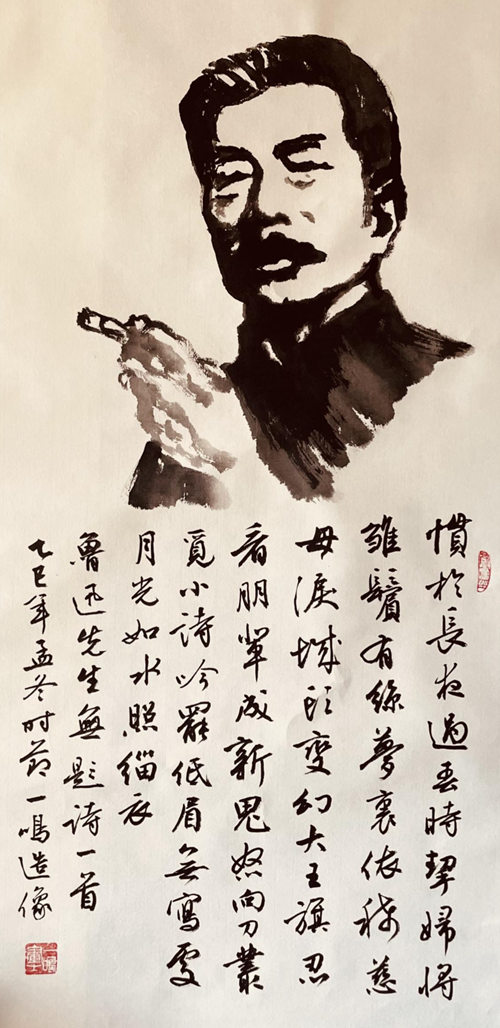 慣於長夜過春時挈婦將
雛鬢有絲夢裏依稀慈
母淚城頭變幻大王旗忍
看朋輩成新鬼怒向刀叢
覓小詩吟罷低眉無寫處
月光如水照緇衣
魯迅先生無題詩一首
乙巳年孟冬時節一鳴造像